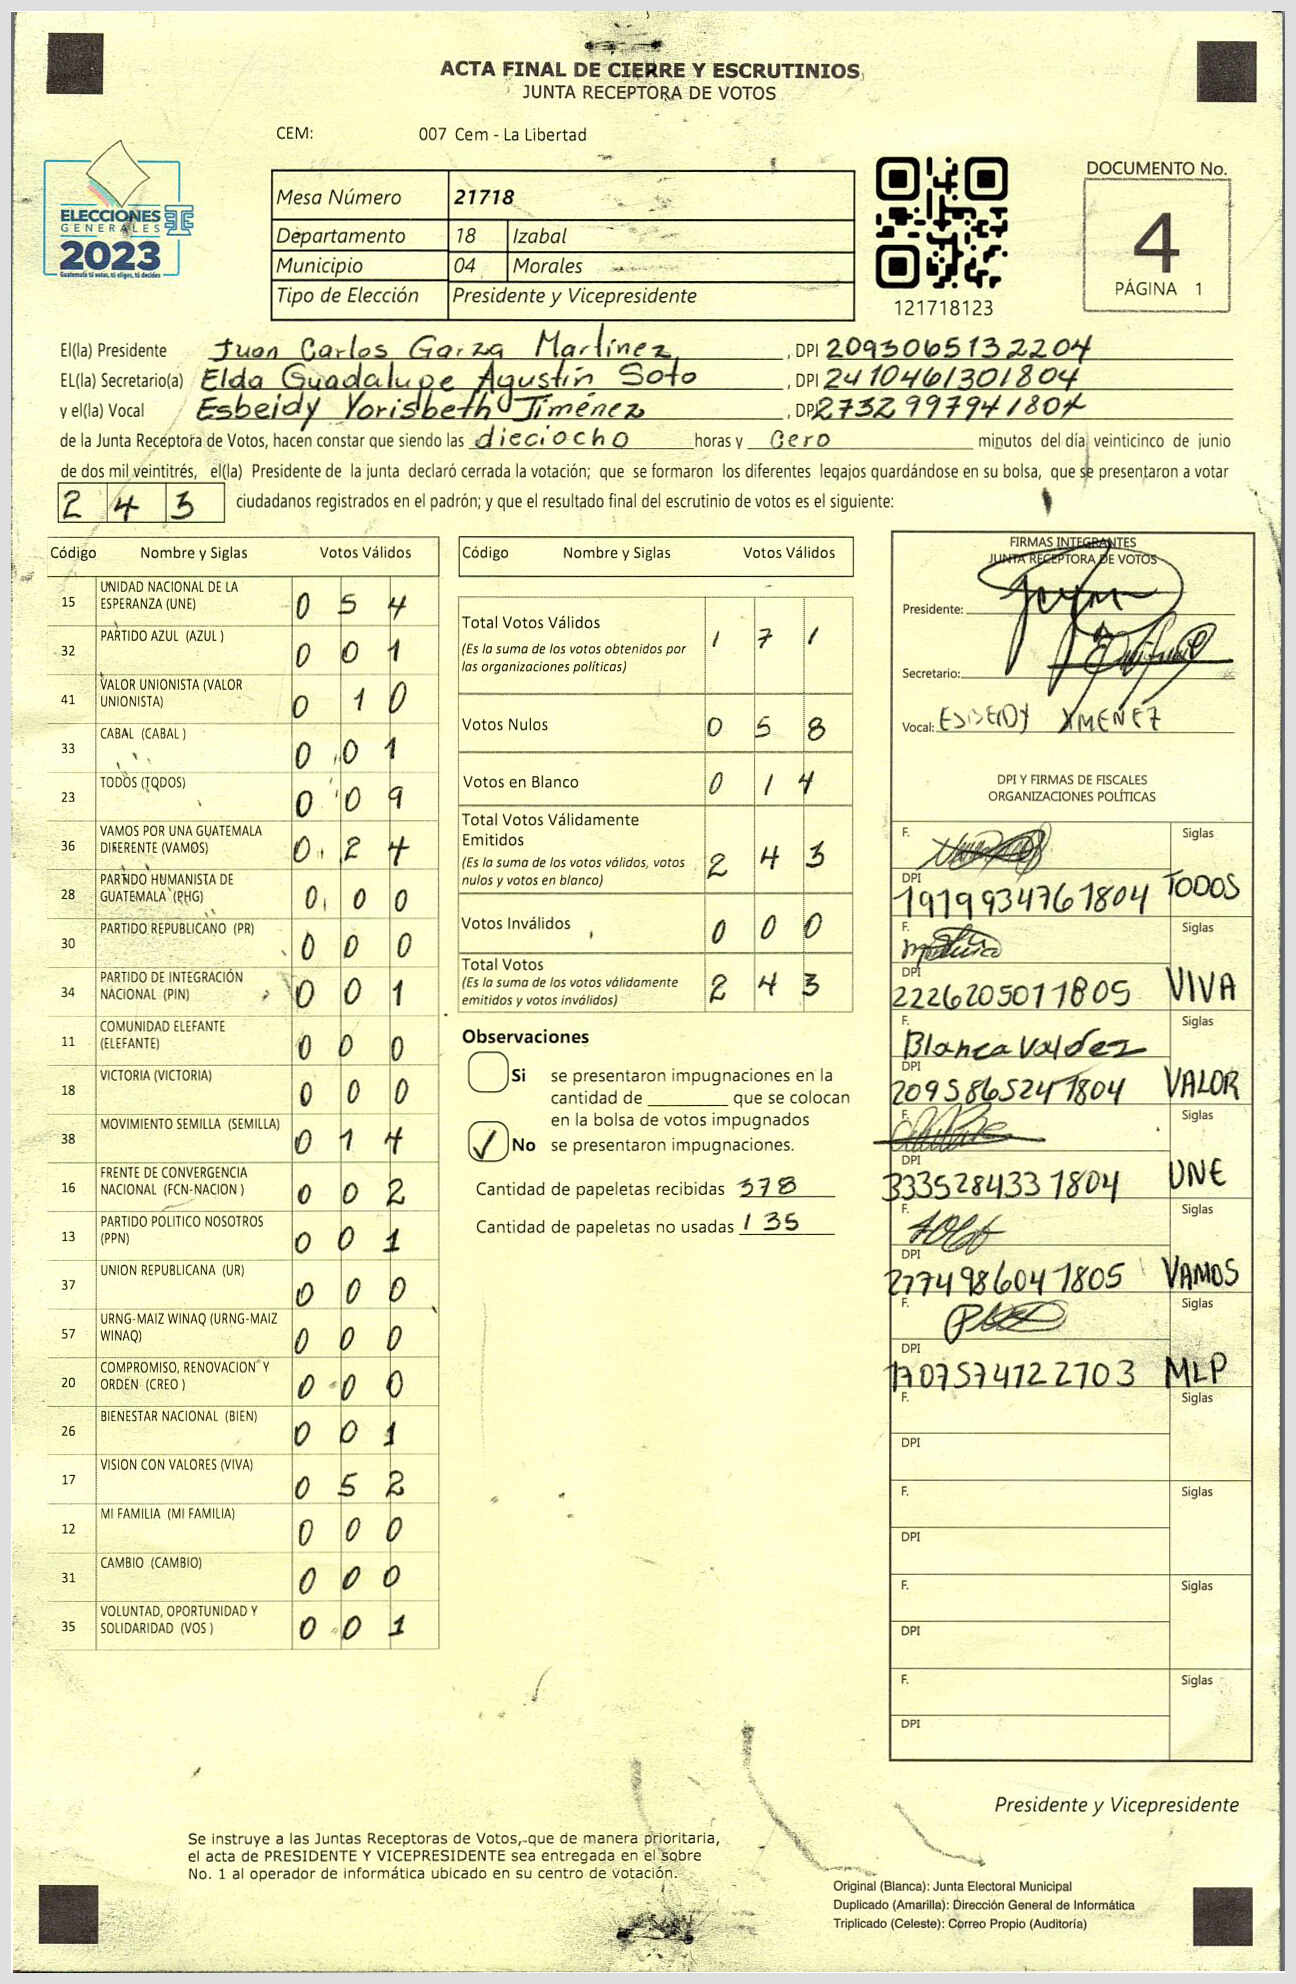 ACTA FINAL DE CIERRE Y ESCRUTINIOS
JUNTA RECEPTORA DE VOTOS
CEM: 007 Cem - La Libertad
ELECCIONES
GENERALES
2023
Guatemala tú votas, tú eliges, tú decides
Mesa Número 21718
Departamento 18 Izabal
Municipio 04 Morales
Tipo de Elección Presidente y Vicepresidente
121718123
DOCUMENTO No.
4
PÁGINA 1
El(la) Presidente Juan Carlos Garza Martínez, , DPI 2093065132204
EL(la) Secretario(a) Elda Guadalupe Agustín Soto , DPI 2410461301804
y el(la) Vocal Esbeidy Yorisbeth Jiménez , DPI 2732997941804
de la Junta Receptora de Votos, hacen constar que siendo las dieciocho horas y cero minutos del día veinticinco de junio
de dos mil veintitrés, el(la) Presidente de la junta declaró cerrada la votación; que se formaron los diferentes legajos quardándose en su bolsa, que se presentaron a votar
2 4 3 ciudadanos registrados en el padrón; y que el resultado final del escrutinio de votos es el siguiente:
Código Nombre y Siglas Votos Válidos
15 UNIDAD NACIONAL DE LA ESPERANZA (UNE) 0 5 4
32 PARTIDO AZUL (AZUL ) 0 0 1
41 VALOR UNIONISTA (VALOR UNIONISTA) 0 1 0
33 CABAL (CABAL ) 0 0 1
23 TODOS (TODOS) 0 0 9
36 VAMOS POR UNA GUATEMALA DIFERENTE (VAMOS) 0 2 4
28 PARTIDO HUMANISTA DE GUATEMALA (PHG) 0 0 0
30 PARTIDO REPUBLICANO (PR) 0 0 0
34 PARTIDO DE INTEGRACIÓN NACIONAL (PIN) 0 0 1
11 COMUNIDAD ELEFANTE (ELEFANTE) 0 0 0
18 VICTORIA (VICTORIA) 0 0 0
38 MOVIMIENTO SEMILLA (SEMILLA) 0 1 4
16 FRENTE DE CONVERGENCIA NACIONAL (FCN-NACION ) 0 0 2
13 PARTIDO POLITICO NOSOTROS (PPN) 0 0 1
37 UNION REPUBLICANA (UR) 0 0 0
57 URNG-MAIZ WINAQ (URNG-MAIZ WINAQ) 0 0 0
20 COMPROMISO, RENOVACION Y ORDEN (CREO ) 0 0 0
26 BIENESTAR NACIONAL (BIEN) 0 0 1
17 VISION CON VALORES (VIVA) 0 5 2
12 MI FAMILIA (MI FAMILIA) 0 0 0
31 CAMBIO (CAMBIO) 0 0 0
35 VOLUNTAD, OPORTUNIDAD Y SOLIDARIDAD (VOS ) 0 0 1
Código Nombre y Siglas Votos Válidos
Total Votos Válidos 1 7 1
(Es la suma de los votos obtenidos por
las organizaciones políticas)
Votos Nulos 0 5 8
Votos en Blanco 0 1 4
Total Votos Válidamente
Emitidos 2 4 3
(Es la suma de los votos válidos, votos
nulos y votos en blanco)
Votos Inválidos 0 0 0
Total Votos 2 4 3
(Es la suma de los votos válidamente
emitidos y votos inválidos)
Observaciones
Si se presentaron impugnaciones en la
cantidad de ________ que se colocan
en la bolsa de votos impugnados
No se presentaron impugnaciones.
Cantidad de papeletas recibidas 378
Cantidad de papeletas no usadas 135
FIRMAS INTEGRANTES
JUNTA RECEPTORA DE VOTOS
Presidente:
Secretario:
Vocal: ESBEIDY XMENEZ
DPI Y FIRMAS DE FISCALES
ORGANIZACIONES POLÍTICAS
F. Siglas
DPI 1919934761804 TODOS
F. Siglas
DPI 2226205011805 VIVA
F. Blanca Valdez Siglas
DPI 2095865241804 VALOR
F. Siglas
DPI 3335284331804 UNE
F. Siglas
DPI 2774986041805 VAMOS
F. Siglas
DPI 1707574122703 MLP
F. Siglas
DPI
F. Siglas
DPI
F. Siglas
DPI
F. Siglas
DPI
Presidente y Vicepresidente
Se instruye a las Juntas Receptoras de Votos, que de manera prioritaria,
el acta de PRESIDENTE Y VICEPRESIDENTE sea entregada en el sobre
No. 1 al operador de informática ubicado en su centro de votación.
Original (Blanca): Junta Electoral Municipal
Duplicado (Amarilla): Dirección General de Informática
Triplicado (Celeste): Correo Propio (Auditoría)